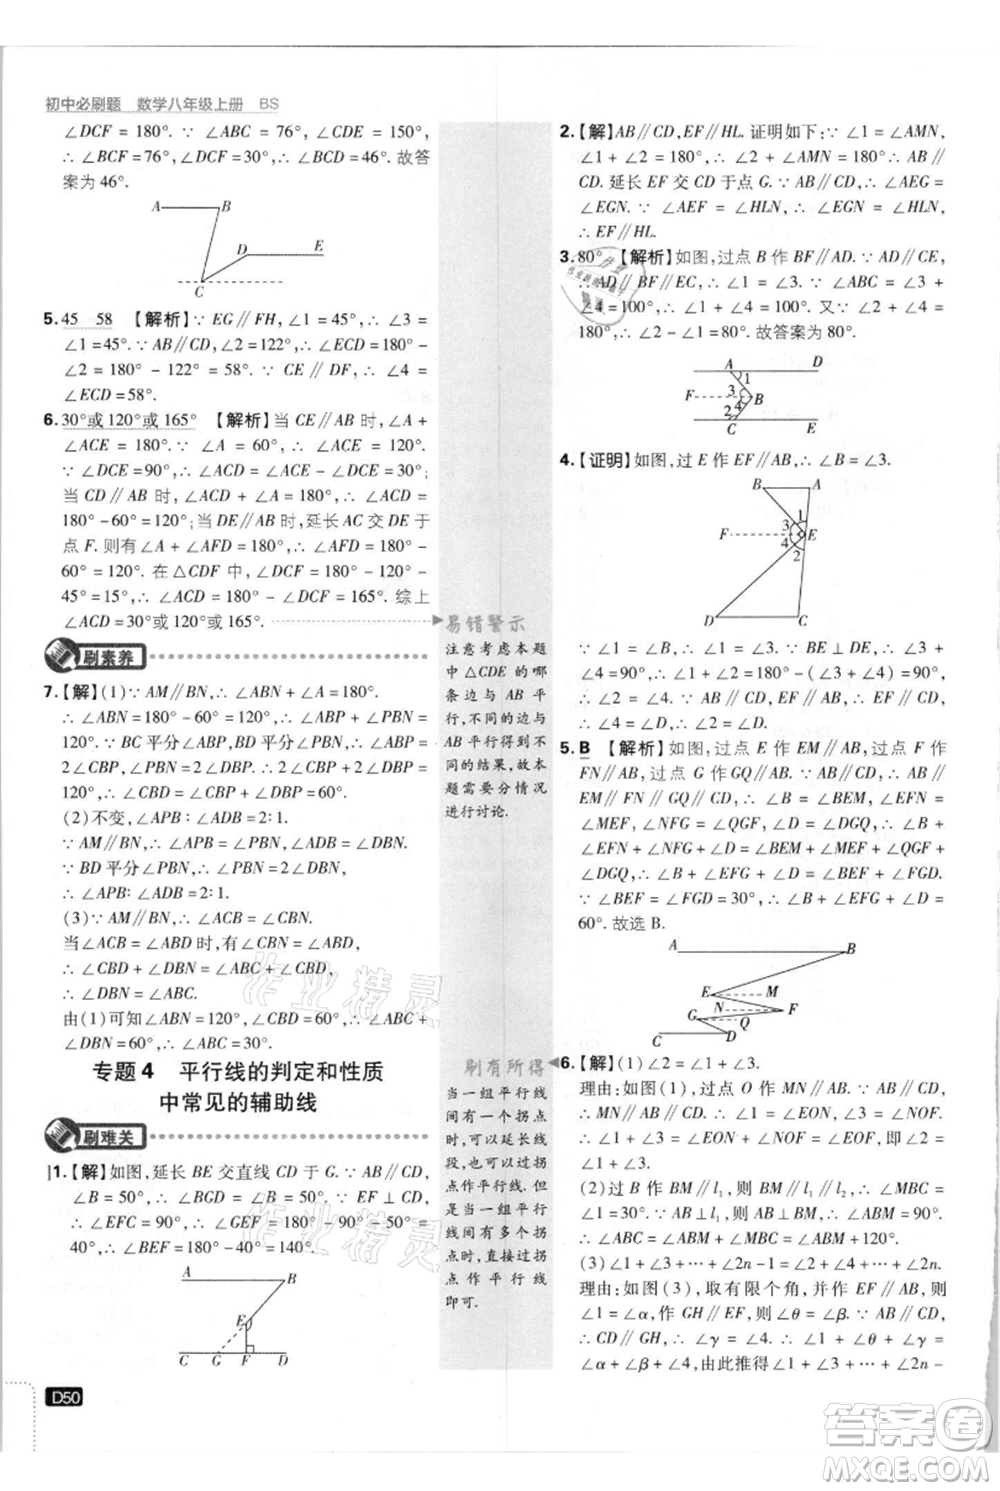 初中必刷题 数学八年级上册 BS
∠DCF=180°. ∵ ∠ABC=76°, ∠CDE=150°,
∴ ∠BCF=76°, ∠DCF=30°, ∴ ∠BCD=46°. 故答
案为46°.
A B D E C
5. 45 58 【解析】∵ EG∥FH, ∠1=45°, ∴ ∠3=
∠1=45°. ∵ AB∥CD, ∠2=122°, ∴ ∠4=
180°-∠2=180°-122°=58°. ∵ CE∥DF, ∴ ∠4=
∠ECD=58°, ∴ ∠ECD=58°.
6. 30°或120°或165° 【解析】当 CE∥AB 时, ∠A+
∠ACE=180°. ∵ ∠A=60°, ∴ ∠ACE=120°.
∵ ∠DCE=90°, ∴ ∠ACD=∠ACE-∠DCE=30°;
当 CD∥AB 时, ∠A+∠ACD=180°, ∴ ∠ACD=
180°-60°=120°; 当 DE∥AB 时, 延长 AC 交 DE 于
点 F. 则有∠A+∠AFD=180°, ∴ ∠AFD=180°-
60°=120°. 在△CDF 中, ∠D=45°, ∴ ∠ACD=
∠D+∠AFD=45°+120°=165°. 综上所述, ∠ACD
的度数为30°或120°或165°.
刷素养
7. 【解】(1)∵ AM∥BN, ∴ ∠ABN+∠A=180°.
∴ ∠ABN=180°-60°=120°, ∴ ∠ABP+∠PBN=
120°. ∵ BC 平分∠ABP, BD 平分∠PBN, ∴ ∠ABP=
2∠CBP, ∠PBN=2∠DBP. ∴ 2∠CBP+2∠DBP=
120°, ∴ ∠CBD=∠CBP+∠DBP=60°.
(2)不变, ∠APB∶∠ADB=2∶1.
∵ AM∥BN, ∴ ∠APB=∠PBN, ∠ADB=∠DBN.
∵ BD 平分∠PBN, ∴ ∠PBN=2∠DBN,
∴ ∠APB∶∠ADB=2∶1.
(3)∵ AM∥BN, ∴ ∠ACB=∠CBN.
当∠ACB=∠ABD 时, 有∠CBN=∠ABD,
∴ ∠CBD+∠DBN=∠ABC+∠CBD,
∴ ∠DBN=∠ABC.
由(1)可知∠ABN=120°, ∠CBD=60°,
∴ ∠ABC+∠DBN=60°, ∴ ∠ABC=30°.
专题4 平行线的判定和性质
中常见的辅助线
刷难关
1. 【解】如图, 延长 BE 交直线 CD 于 G. ∵ AB∥CD,
∠B=50°, ∴ ∠BGD=∠B=50°. ∵ EF⊥CD,
∴ ∠EFC=90°, ∴ ∠GEF=180°-90°-50°=
40°, ∴ ∠BEF=180°-40°=140°.
A B E C G F D
D50
易错警示
注意考虑本题
中△CDE 的哪
条边与 AB 平
行, 不同的边与
AB 平行得到不
同的结果, 故本
题需要分情况
进行讨论.
刷有所得
当一组平行线
间有一个拐点
时, 可以延长线
段, 可以过拐
点作平行线. 但
是当一组平行
线间有多个拐
点时, 直接过拐
点作平行线
即可.
2. 【解】AB∥CD, EF∥HL. 证明如下: ∵ ∠AMN=∠2,
∠1+∠2=180°, ∴ ∠1+∠AMN=180°, ∴ AB∥
CD. 延长 EF 交 CD 于点 G. ∵ AB∥CD, ∴ ∠AEF=
∠EGN. ∵ ∠AEF=∠HLN, ∴ ∠EGN=∠HLN,
∴ EF∥HL.
3. 80° 【解析】如图, 过点 B 作 BF∥AD. ∵ AD∥CE,
∴ AD∥BF∥CE, ∴ ∠1=∠3, ∠2+∠4=180°.
∵ ∠3+∠4=100°, ∴ ∠1+∠4=100°. 又∵ ∠2+∠4=
180°, ∴ ∠2-∠1=80°. 故答案为80°.
A D 1 F 3 4 B 2 C E
4. 【证明】如图, 过 E 作 EF∥AB, ∴ ∠B=∠3.
B A 3 1 F 4 E 2 D C
∵ ∠1=∠B, ∴ ∠1=∠3. ∵ BE⊥DE, ∴ ∠3+
∠4=90°, ∠1+∠2=90°, ∴ ∠2=∠4. ∵ ∠2=∠D,
∴ ∠4=∠D, ∴ EF∥CD, ∴ AB∥CD.
5. B 【解析】如图, 过点 E 作 EM∥AB, 过点 F 作
FN∥AB, 过点 G 作 GQ∥AB. ∵ AB∥CD, ∴ AB∥
EM∥FN∥GQ∥CD, ∴ ∠B=∠BEM, ∠EFN=
∠MEF, ∠NFG=∠QGF, ∠D=∠DGQ, ∴ ∠B+
∠EFN+∠NFG+∠D=∠BEM+∠MEF+∠QGF+
∠DGQ, ∴ ∠B+∠EFG+∠D=∠BEF+∠FGD.
∵ ∠BEF+∠FGD=∠D+∠EFG+∠B, ∠B=
60°. 故选 B.
A B E M N F G Q C D
6. 【解】(1)∠2=∠1+∠3.
理由: 如图(1), 过点 O 作 MN∥AB, ∵ AB∥CD,
∴ MN∥AB∥CD, ∴ ∠1=∠EON, ∠3=∠NOF.
∴ ∠1+∠3=∠EON+∠NOF=∠EOF=∠2,
∴ ∠2=∠1+∠3.
(2)如图(2), 过 B 作 BM∥l₁, ∴ ∠MBC=
∠1. ∵ AB⊥l₁, ∴ AB⊥BM, ∴ ∠ABM=90°,
∴ ∠ABC=∠ABM+∠MBC=90°+∠1.
(3)∠1+∠3+…+∠2n-1=∠2+∠4+…+∠2n.
理由: 如图(3), 取有限个角, 并作 EF∥AB, 则
∠1=∠α, 作 GH∥EF, 则∠θ=∠β. ∵ AB∥CD,
∴ CD∥GH, ∴ ∠γ=∠4, ∴ ∠1+∠β+∠γ=
∠α+∠θ+∠4, 由此推得∠1+∠3+…+∠2n-1=
∠2+∠4+…+∠2n.
作业精灵
作业精灵
答案圈
MXQE.COM